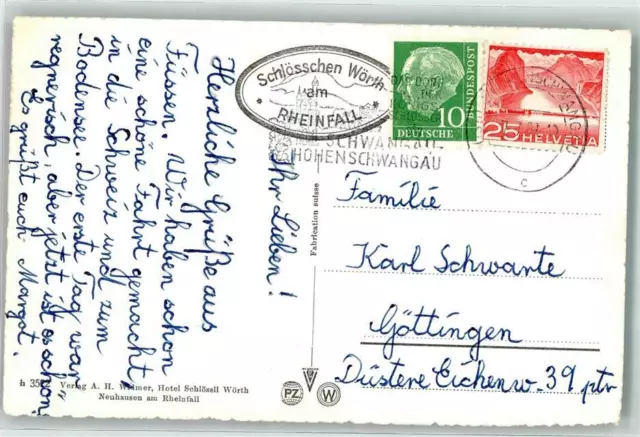 Ihr Lieben!
Herzliche Grüße aus
Füssen. Wir haben schon
eine schöne Fahrt gemacht
in die Schweiz und zum
Bodensee. Der erste Tag war
regnerisch, aber jetzt ist es schön.
Es grüßt euch Margot.
Schlösschen Wörth
am
RHEINFALL
10
DEUTSCHE
BUNDESPOST
25 HELVETIA
SCHWANGAU
HOHENSCHWANGAU
c
Familie
Karl Schwarte
Göttingen
Düstere Eichenw. 39 ptr
Fabrication suisse
Verlag A. H. Widmer, Hotel Schlössli Wörth
Neuhausen am Rheinfall
PZ
W